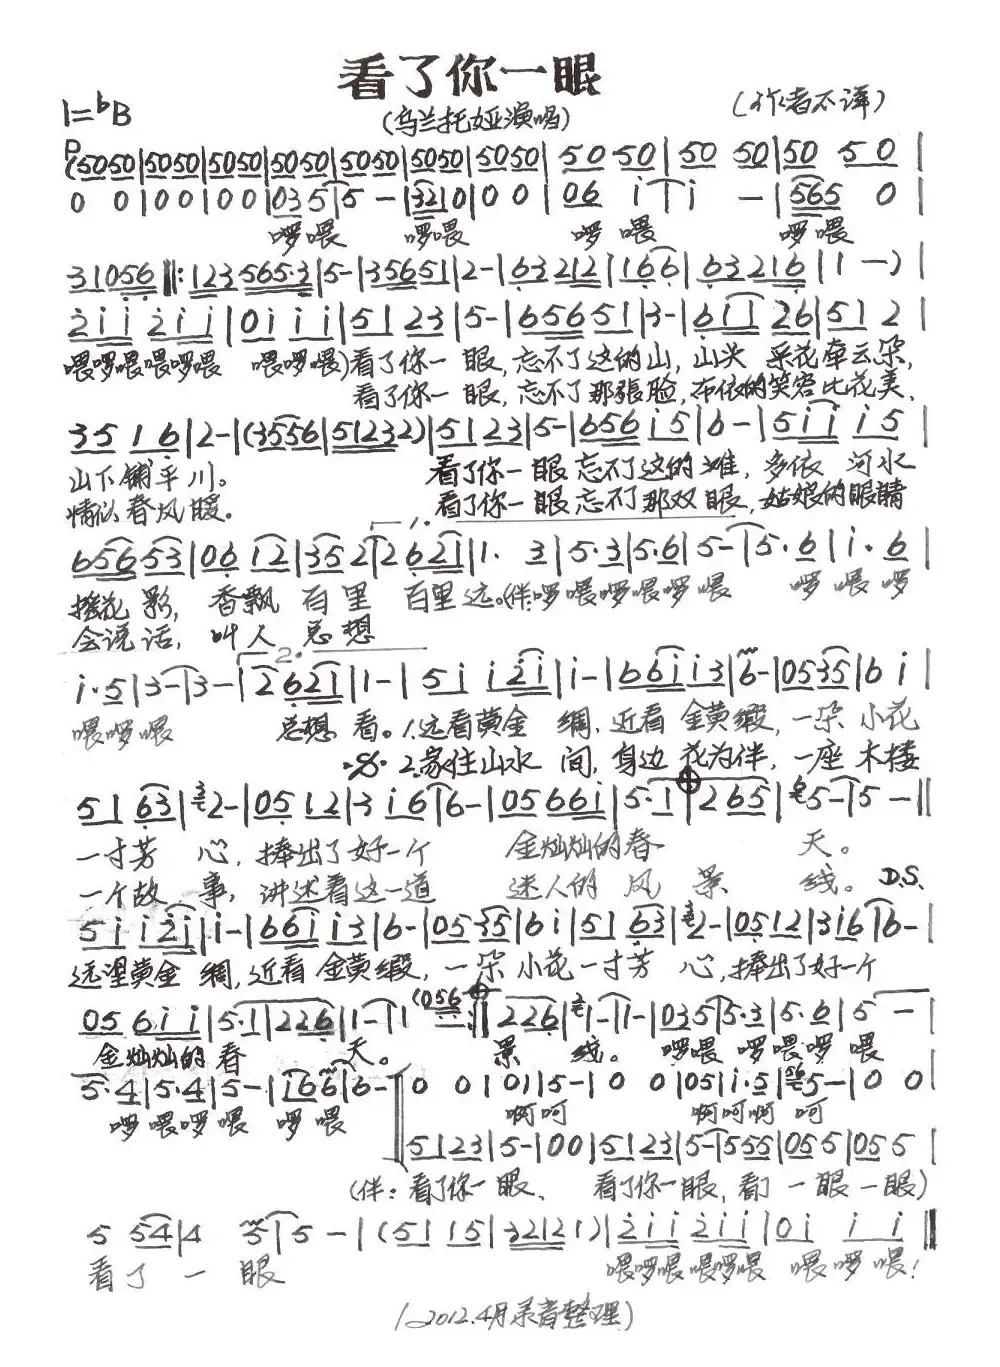 看了你一眼
1=bB
(乌兰托娅演唱)
(作者不详)
P
(5050|5050|5050|5050|5050|5050|5050|50 50|50 50|50 50|
0 0|00|00|035|5-|3210|00|06 i|i -|565 0|
啰喂 啰喂 啰喂 啰喂
31056‖:123565·3|5-|35651|2-|63212|166|63216|1 -)|
2ii 2ii|0i i i|51 23|5-|656 51|3-|6i1 26|51 2|
喂啰喂喂啰喂 喂啰喂)看了你一 眼,忘不了这的山,山头 采花牵云朵,
看了你一 眼,忘不了那張脸,布依的笑容比花美,
35 1 6|2-|(3556|51232)|51 23|5-|656 i5|6-|5ii i5|
山下铺平川。 看了你一 眼忘不了这的滩,多依 河水
情似春风暖。 看了你一 眼忘不了那双眼,姑娘的眼睛
1.
656 53|06 12|35 2|2 621|1· 3|5·3|5·6|5-|5·6|i·6|
摇花 影, 香飘 百里 百里远。(伴:啰喂啰喂啰喂 啰喂啰
会说话, 叫人 总想
2.
i·5|3-|3-|2 621|1-|5i i2i|i-|66i i3|6-|0535|6 i|
喂啰喂 总想 看。1.远看黄金 绸,近看 金黄缎,一朵 小花
2.家住山水 间,身边 花为伴,一座 木楼
51 63|2-|05 12|3 i6|6-|05 66i|5·1|2 65|5-|5 -‖
一寸芳 心,捧出了好一个 金灿灿的春 天。
一个故 事,讲述着这一道 迷人的 风 景 线。 D.S.
5i i2i|i-|66i i3|6-|05 35|6i|51 63|2-|0512|3i6|6-|
远望黄金 绸,近看 金黄缎,一朵 小花一寸芳 心,捧出了好一个
05 6ii|5·1|226|1-|1 (056:‖226|1-|1-|035|5·3|5·6|5 -|
金灿灿的春 天。 景 线。 啰喂 啰喂啰喂
5·4|5·4|5-|i66|6-|0 0|01|5-|0 0|05|i·5|5-|0 0|
啰喂啰喂 啰喂 啊呵 啊呵啊 呵
5123|5-|00|5123|5-|555|055|05 5|
(伴:看了你一眼、 看了你一眼,看了 一眼一眼)
5 54|4 5|5 -|(51 15|3212 1)|2ii 2ii|0i i i‖
看了 一 眼 喂啰喂喂啰喂 喂啰喂!
(2012.4月录音整理)